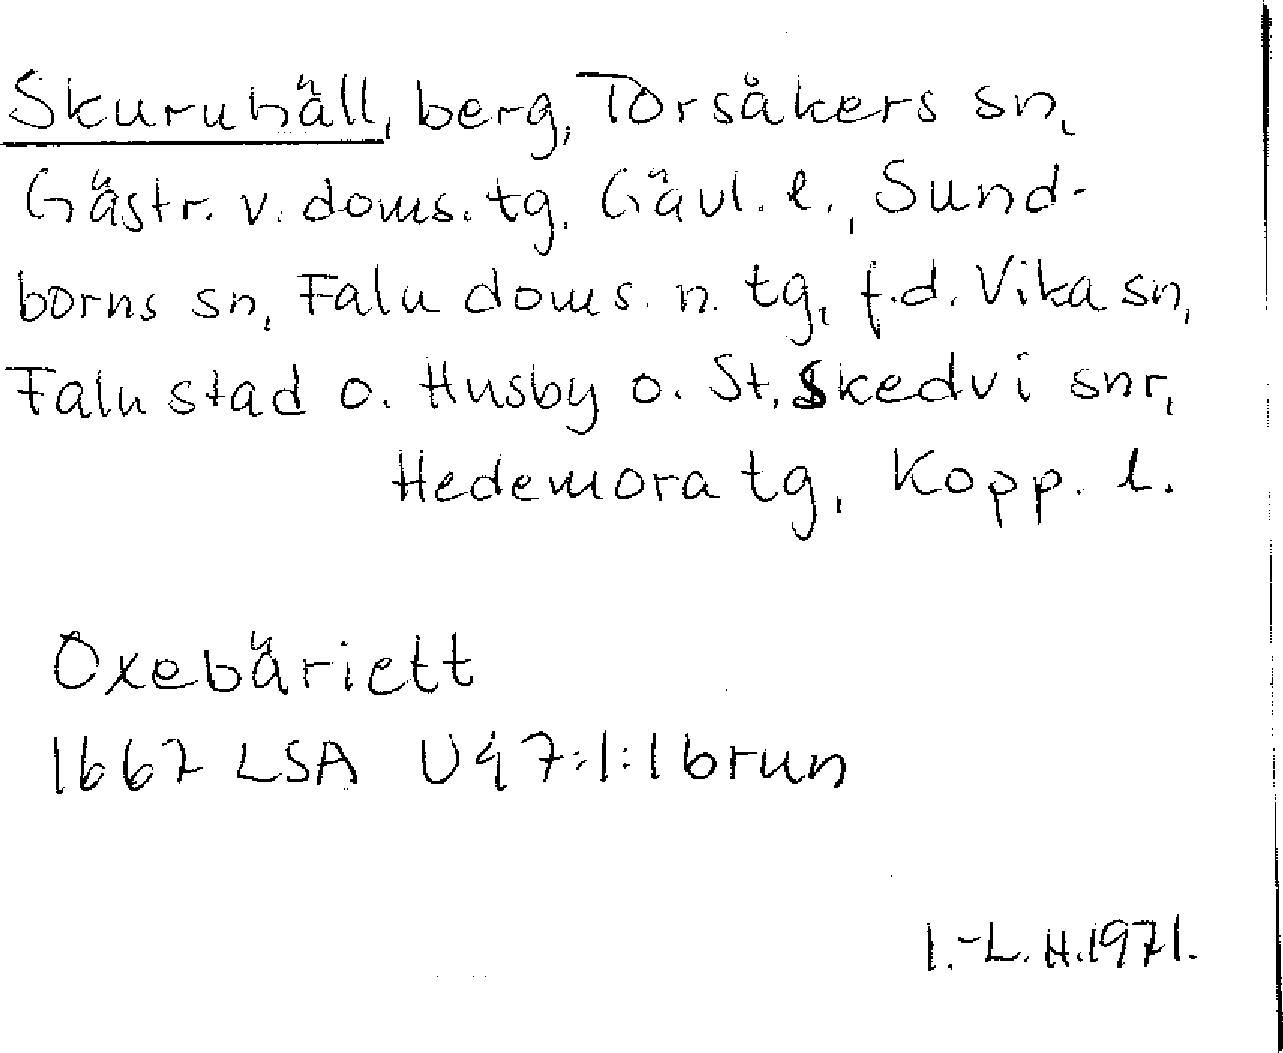 Skuruhäll, berg, Torsåkers sn,
Gästr. v. doms. tg, Gävl. l., Sund-
borns sn, Falu doms. n. tg, f.d. Vika sn,
Falu stad o. Husby o. St. Skedvi snr,
Hedemora tg, Kopp. l.
Oxebäriett
1667 LSA U47:1:1 brun
I.-L. H. 1971.